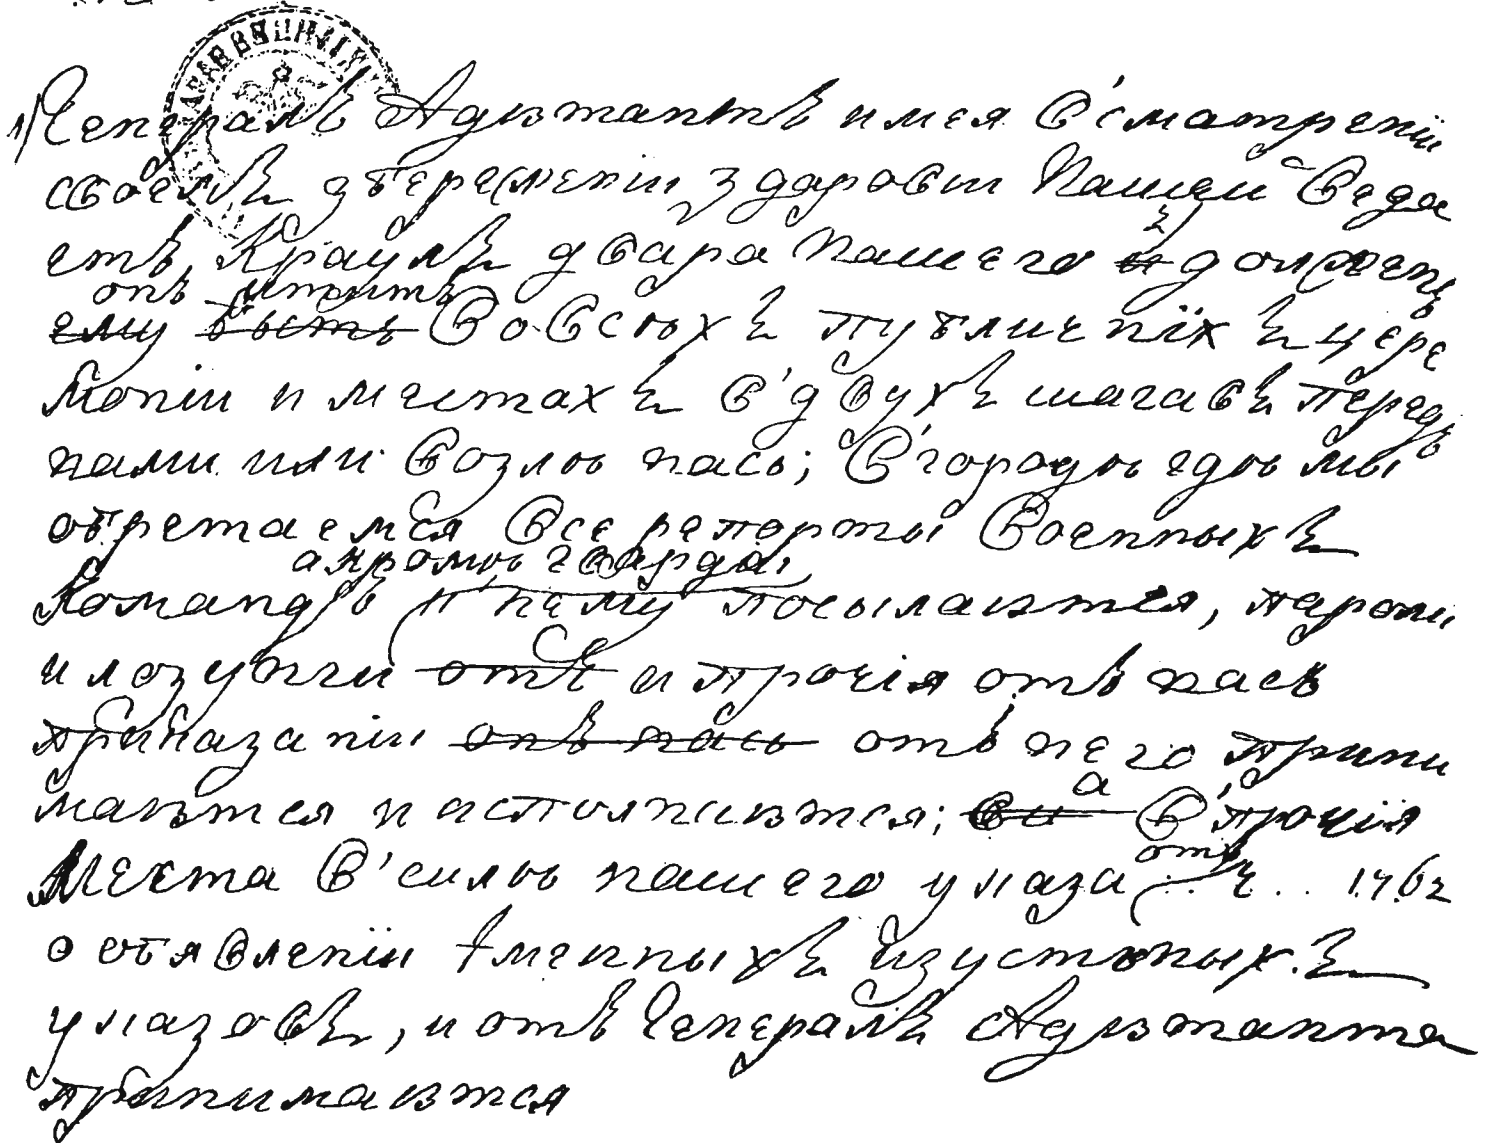 1) Генералъ Адютантъ имея в'смотрении
своемъ збережении здоровьи Нашей веде
етъ, Краулъ двара Нашего и должен
онъ итить
ему быть вовсюхъ публичніхъ цере
монии и местахъ в'двухъ шагавъ передъ
нами или возлю насъ; в'городю гдю мы
обретаемся все репорты военныхъ
акромю гварди
Командъ к'нему посылаются, пароли
и лозунги отъ и прочія отъ насъ
приказании онъ насъ отъ него прини
маютца и исполниютса; ви а в'прочія
Места в'силю нашего указа отъ .. ч .. 1762
о объявлении Імянныхъ изустныхъ
указовъ, и отъ Генералъ Адютанта
принимаютса